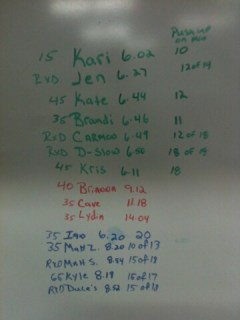 Push up
15 Kari 6.02 10
RXD Jen 6.27 12 of 14
45 Kate 6.44 12
35 Brandi 6.46 11
RXD Carmen 6.49 12 of 18
RXD D-Slow 18 of 19
45 Kris 6.11 18
40 9.12
35 Cave 11.18
35 Lydia 14.04
35 Ino 6.20 20
35 Matt Z. 8.20 10 of 13
RXD Matt S. 8.54 15 of 18
65 Kyle 8.19 15 of 17
RXD 8.52 15 of 18